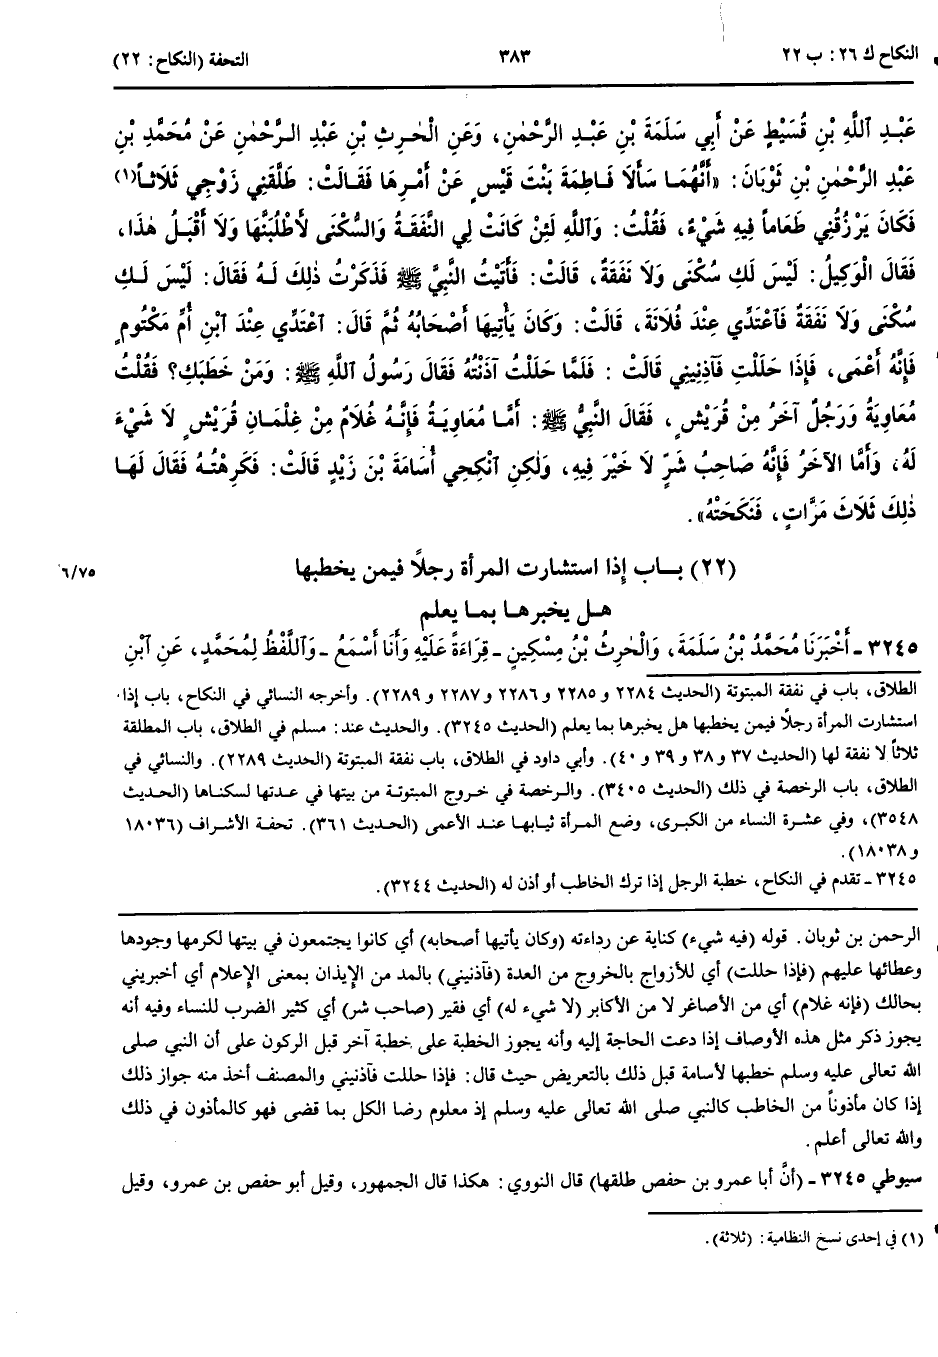 النكاح ك ٢٦: ب ٢٢
٣٨٣
التحفة (النكاح: ٢٢)
عَبْدِ ٱللَّهِ بْنِ قُسَيْطٍ عَنْ أَبِي سَلَمَةَ بْنِ عَبْدِ الرَّحْمٰنِ، وَعَنِ الْحٰرِثِ بْنِ عَبْدِ الرَّحْمٰنِ عَنْ مُحَمَّدِ بْنِ
عَبْدِ الرَّحْمٰنِ بْنِ ثَوْبَانَ: «أَنَّهُمَا سَأَلَا فَاطِمَةَ بَنْتَ قَيْسٍ عَنْ أَمْرِهَا فَقَالَتْ: طَلَّقَنِي زَوْجِي ثَلَاثاً(١)
فَكَانَ يَرْزُقُنِي طَعَاماً فِيهِ شَيْءٌ، فَقُلْتُ: وَٱللَّهِ لَئِنْ كَانَتْ لِي النَّفَقَةُ وَالسُّكْنَى لَأَطْلُبَنَّهَا وَلَا أَقْبَلُ هٰذَا،
فَقَالَ الْوَكِيلُ: لَيْسَ لَكِ سُكْنَى وَلَا نَفَقَةٌ، قَالَتْ: فَأَتَيْتُ النَّبِيَّ ﷺ فَذَكَرْتُ ذٰلِكَ لَهُ فَقَالَ: لَيْسَ لَكِ
سُكْنَى وَلَا نَفَقَةٌ فَٱعْتَدِّي عِنْدَ فُلَانَةَ، قَالَتْ: وَكَانَ يَأْتِيهَا أَصْحَابُهُ ثُمَّ قَالَ: ٱعْتَدِّي عِنْدَ ٱبْنِ أُمِّ مَكْتُومٍ
فَإِنَّهُ أَعْمَى، فَإِذَا حَلَلْتِ فَآذِنِينِي قَالَتْ: فَلَمَّا حَلَلْتُ آذَنْتُهُ فَقَالَ رَسُولُ ٱللَّهِ ﷺ: وَمَنْ خَطَبَكِ؟ فَقُلْتُ
مُعَاوِيَةُ وَرَجُلٌ آخَرُ مِنْ قُرَيْشٍ، فَقَالَ النَّبِيُّ ﷺ: أَمَّا مُعَاوِيَةُ فَإِنَّهُ غُلَامٌ مِنْ غِلْمَانِ قُرَيْشٍ لَا شَيْءَ
لَهُ، وَأَمَّا الآخَرُ فَإِنَّهُ صَاحِبُ شَرٍّ لَا خَيْرَ فِيهِ، وَلٰكِنِ ٱنْكِحِي أُسَامَةَ بْنَ زَيْدٍ قَالَتْ: فَكَرِهْتُهُ فَقَالَ لَهَا
ذٰلِكَ ثَلَاثَ مَرَّاتٍ، فَنَكَحَتْهُ».
(٢٢) بـاب إذا استشارت المرأة رجلاً فيمن يخطبها
٦/٧٥
هـل يخبرهـا بمـا يعلم
٣٢٤٥ ـ أَخْبَرَنَا مُحَمَّدُ بْنُ سَلَمَةَ، وَالْحٰرِثُ بْنُ مِسْكِينٍ ـ قِرَاءَةً عَلَيْهِ وَأَنَا أَسْمَعُ ـ وَٱللَّفْظُ لِمُحَمَّدٍ، عَنِ ٱبْنِ
الطلاق، باب في نفقة المبتوتة (الحديث ٢٢٨٤ و ٢٢٨٥ و ٢٢٨٦ و ٢٢٨٧ و ٢٢٨٩). وأخرجه النسائي في النكاح، باب إذا
استشارت المرأة رجلًا فيمن يخطبها هل يخبرها بما يعلم (الحديث ٣٢٤٥). والحديث عند: مسلم في الطلاق، باب المطلقة
ثلاثاً لا نفقة لها (الحديث ٣٧ و ٣٨ و ٣٩ و ٤٠). وأبي داود في الطلاق، باب نفقة المبتوتة (الحديث ٢٢٨٩). والنسائي في
الطلاق، باب الرخصة في ذلك (الحديث ٣٤٠٥). والرخصة في خروج المبتوتة من بيتها في عدتها لسكناها (الحديث
٣٥٤٨)، وفي عشرة النساء من الكبرى، وضع المرأة ثيابها عند الأعمى (الحديث ٣٦١). تحفة الأشراف (١٨٠٣٦
و ١٨٠٣٨).
٣٢٤٥ ـ تقدم في النكاح، خطبة الرجل إذا ترك الخاطب أو أذن له (الحديث ٣٢٤٤).
الرحمن بن ثوبان. قوله (فيه شيء) كناية عن رداءته (وكان يأتيها أصحابه) أي كانوا يجتمعون في بيتها لكرمها وجودها
وعطائها عليهم (فإذا حللت) أي للأزواج بالخروج من العدة (فآذنيني) بالمد من الإيذان بمعنى الإعلام أي أخبريني
بحالك (فإنه غلام) أي من الأصاغر لا من الأكابر (لا شيء له) أي فقير (صاحب شر) أي كثير الضرب للنساء وفيه أنه
يجوز ذكر مثل هذه الأوصاف إذا دعت الحاجة إليه وأنه يجوز الخطبة على خطبة آخر قبل الركون على أن النبي صلى
الله تعالى عليه وسلم خطبها لأسامة قبل ذلك بالتعريض حيث قال: فإذا حللت فآذنيني والمصنف أخذ منه جواز ذلك
إذا كان مأذوناً من الخاطب كالنبي صلى الله تعالى عليه وسلم إذ معلوم رضا الكل بما قضى فهو كالمأذون في ذلك
والله تعالى أعلم.
سيوطي ٣٢٤٥ ـ (أنَّ أبا عمرو بن حفص طلقها) قال النووي: هكذا قال الجمهور، وقيل أبو حفص بن عمرو، وقيل
(١) في إحدى نسخ النظامية: (ثلاثة).